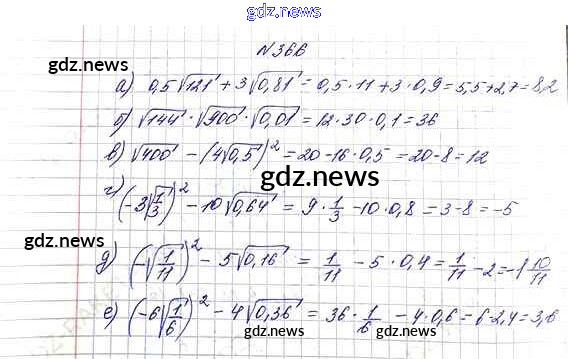 gdz.news
gdz.news
№366
gdz.news
а) 0,5√121 + 3√0,81 = 0,5·11+3·0,9=5,5+2,7=8,2
б) √144 · √900 · √0,01 = 12·30·0,1=36
в) √400 - (4√0,5)² = 20-16·0,5=20-8=12
gdz.news
г) (-3√1/3)² - 10√0,64 = 9·1/3 - 10·0,8 = 3-8 = -5
gdz.news
д) (-√1/11)² - 5√0,16 = 1/11 - 5·0,4 = 1/11 - 2 = -1 10/11
е) (-6√1/6)² - 4√0,36 = 36·1/6 - 4·0,6=6-2,4=3,6
gdz.news gdz.news